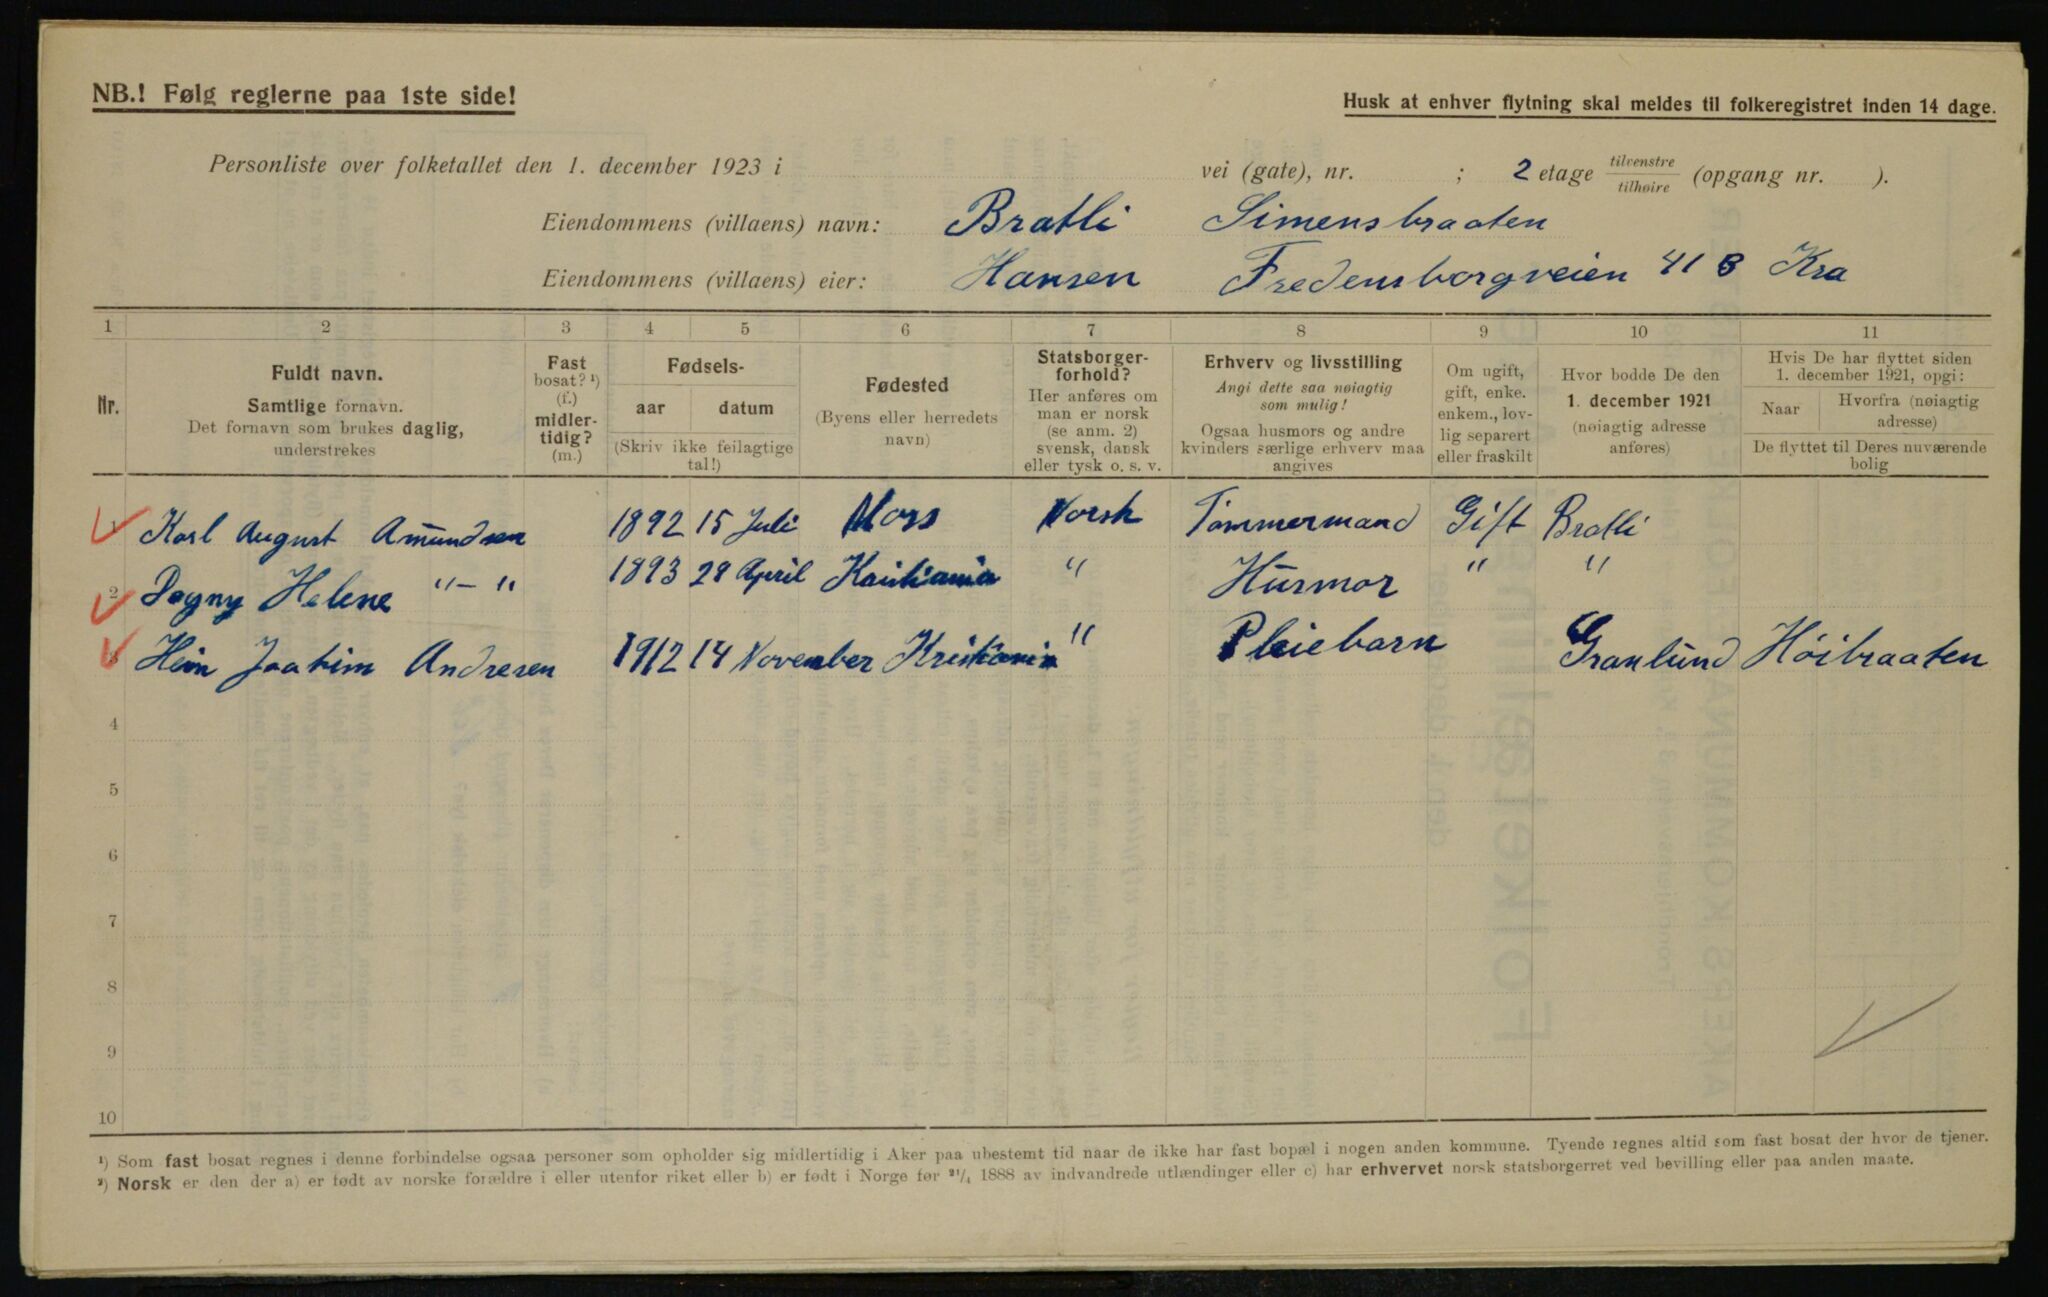 NB.! Følg reglerne paa 1ste side!
Husk at enhver flytning skal meldes til folkeregistret inden 14 dage.
Personliste over folketallet den 1. december 1923 i vei (gate), nr. ; 2 etage tilvenstre/tilhøire (opgang nr. ).
Eiendommens (villaens) navn: Bratli Simensbraaten
Eiendommens (villaens) eier: Hansen Fredensborgveien 41 B Kra
1 2 3 4 5 6 7 8 9 10 11
Nr.
Fuldt navn.
Samtlige fornavn.
Det fornavn som brukes daglig,
understrekes
Fast
bosat? ¹)
(f.)
midler-
tidig?
(m.)
Fødsels-
aar datum
(Skriv ikke feilagtige
tal!)
Fødested
(Byens eller herredets
navn)
Statsborger-
forhold?
Her anføres om
man er norsk
(se anm. 2)
svensk, dansk
eller tysk o. s. v.
Erhverv og livsstilling
Angi dette saa nøiagtig
som mulig!
Ogsaa husmors og andre
kvinders særlige erhverv maa
angives
Om ugift,
gift, enke.
enkem., lov-
lig separert
eller fraskilt
Hvor bodde De den
1. december 1921
(nøiagtig adresse
anføres)
Hvis De har flyttet siden
1. december 1921, opgi:
Naar Hvorfra (nøiagtig
adresse)
De flyttet til Deres nuværende
bolig
1 Karl August Amundsen 1892 15 Juli Moss Norsk Tømmermand Gift Bratli
2 Dagny Helene " - " 1893 29 April Kristiania " Husmor " "
3 Hein Joakim Andresen 1912 14 November Kristiania " Pleiebarn Granlund Höibraaten
4
5
6
7
8
9
10
¹) Som fast bosat regnes i denne forbindelse ogsaa personer som opholder sig midlertidig i Aker paa ubestemt tid naar de ikke har fast bopæl i nogen anden kommune. Tyende regnes altid som fast bosat der hvor de tjener.
²) Norsk er den der a) er født av norske forældre i eller utenfor riket eller b) er født i Norge før ²¹/₄ 1888 av indvandrede utlændinger eller c) har erhvervet norsk statsborgerret ved bevilling eller paa anden maate.